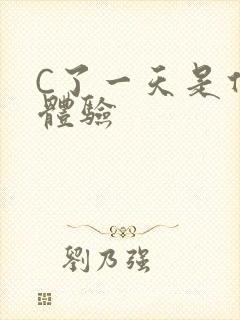 C了一天是什
體驗
劉乃强